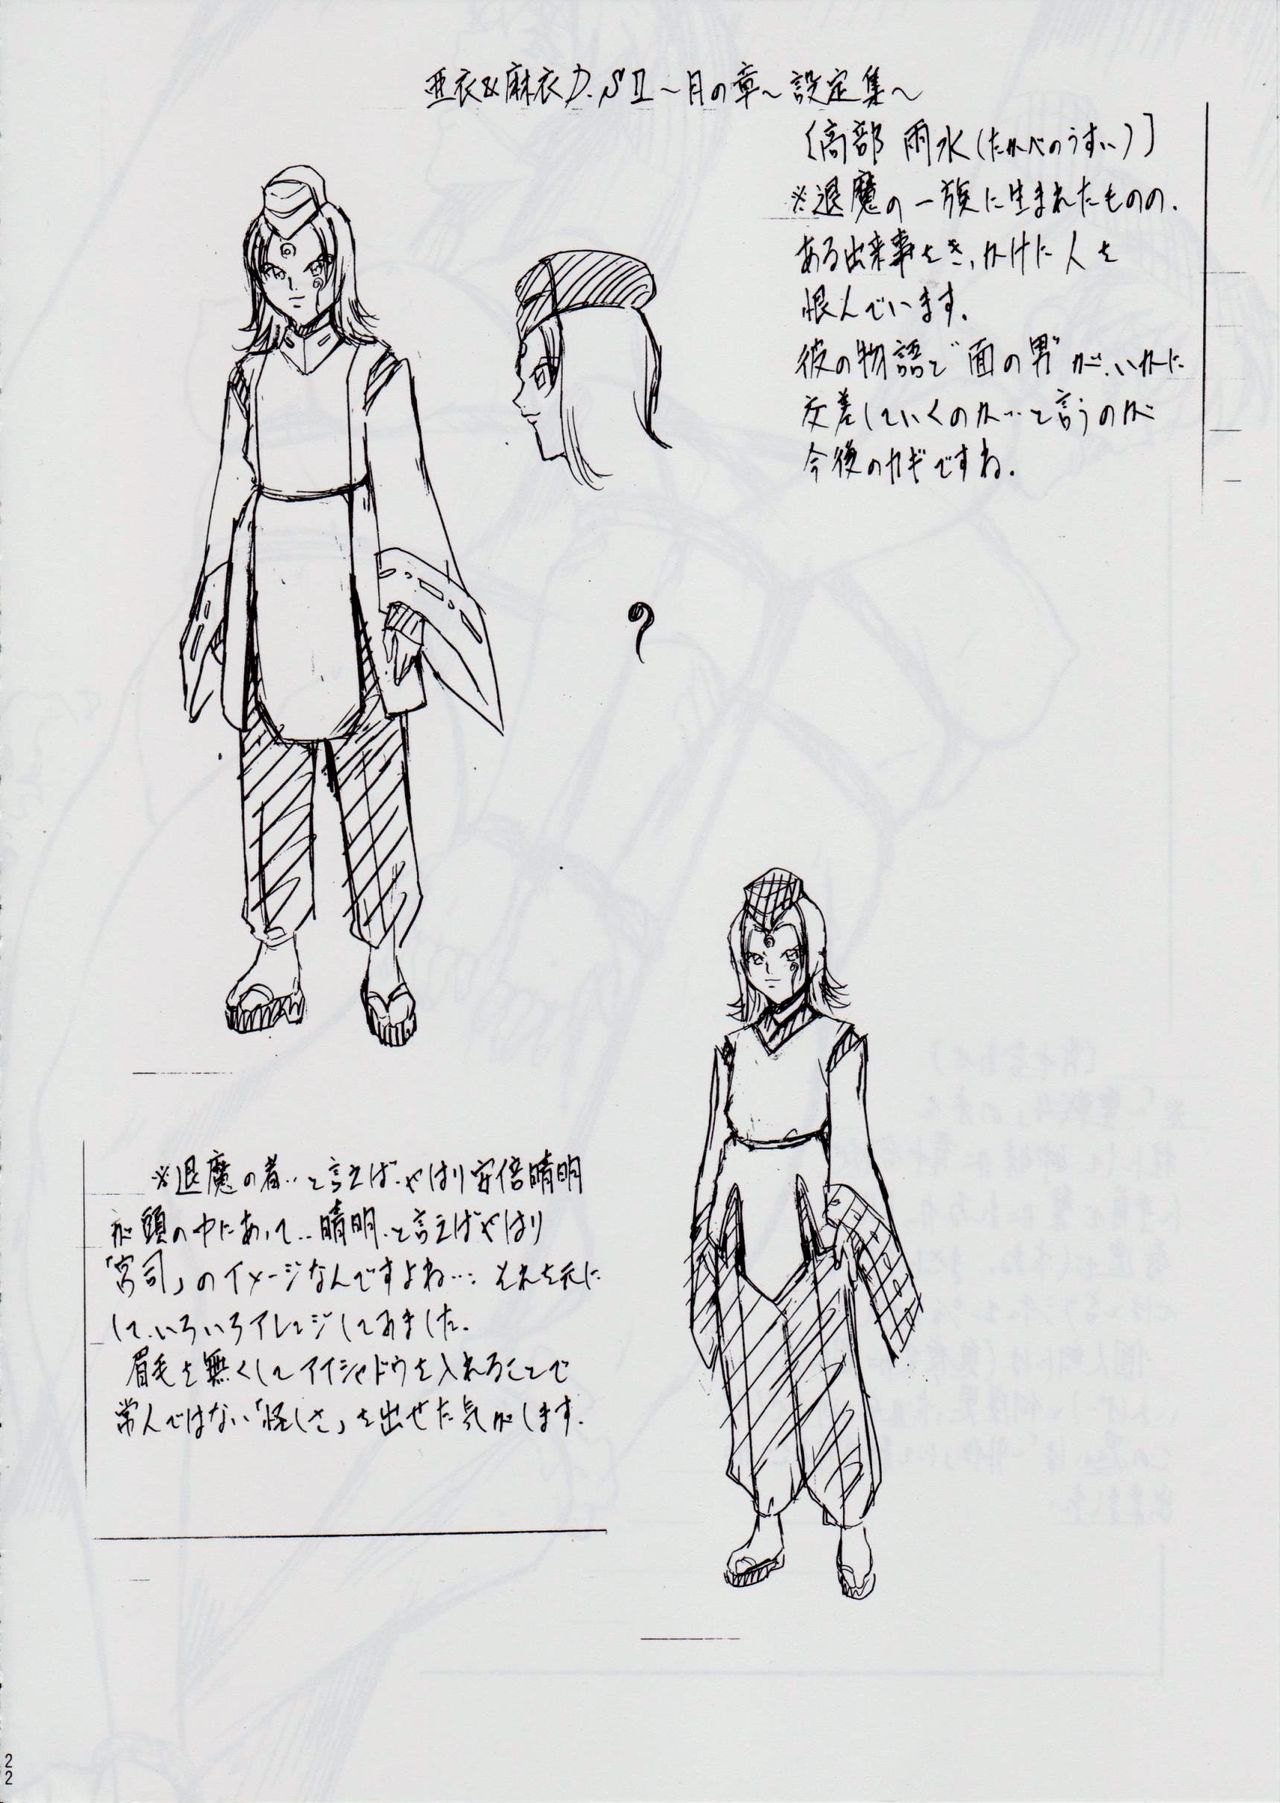 亜衣&麻衣D.SⅡ～月の章～設定集～
〔高部 雨水(たかべのうすい)〕
※退魔の一族に生まれたものの、
ある出来事をきっかけに人を
恨んでいます。
彼の物語で"面の男"が、いかに
交差していくのか…と言うのが
今後のカギですね。
※退魔の者…と言えば、やはり安倍晴明
が頭の中にあって…晴明、と言えばやはり
「宮司」のイメージなんですよね…。それを元に
して、いろいろアレンジしてみました。
眉毛を無くしてアイシャドウを入れることで
常人ではない「怪しさ」を出せた気がします。
22